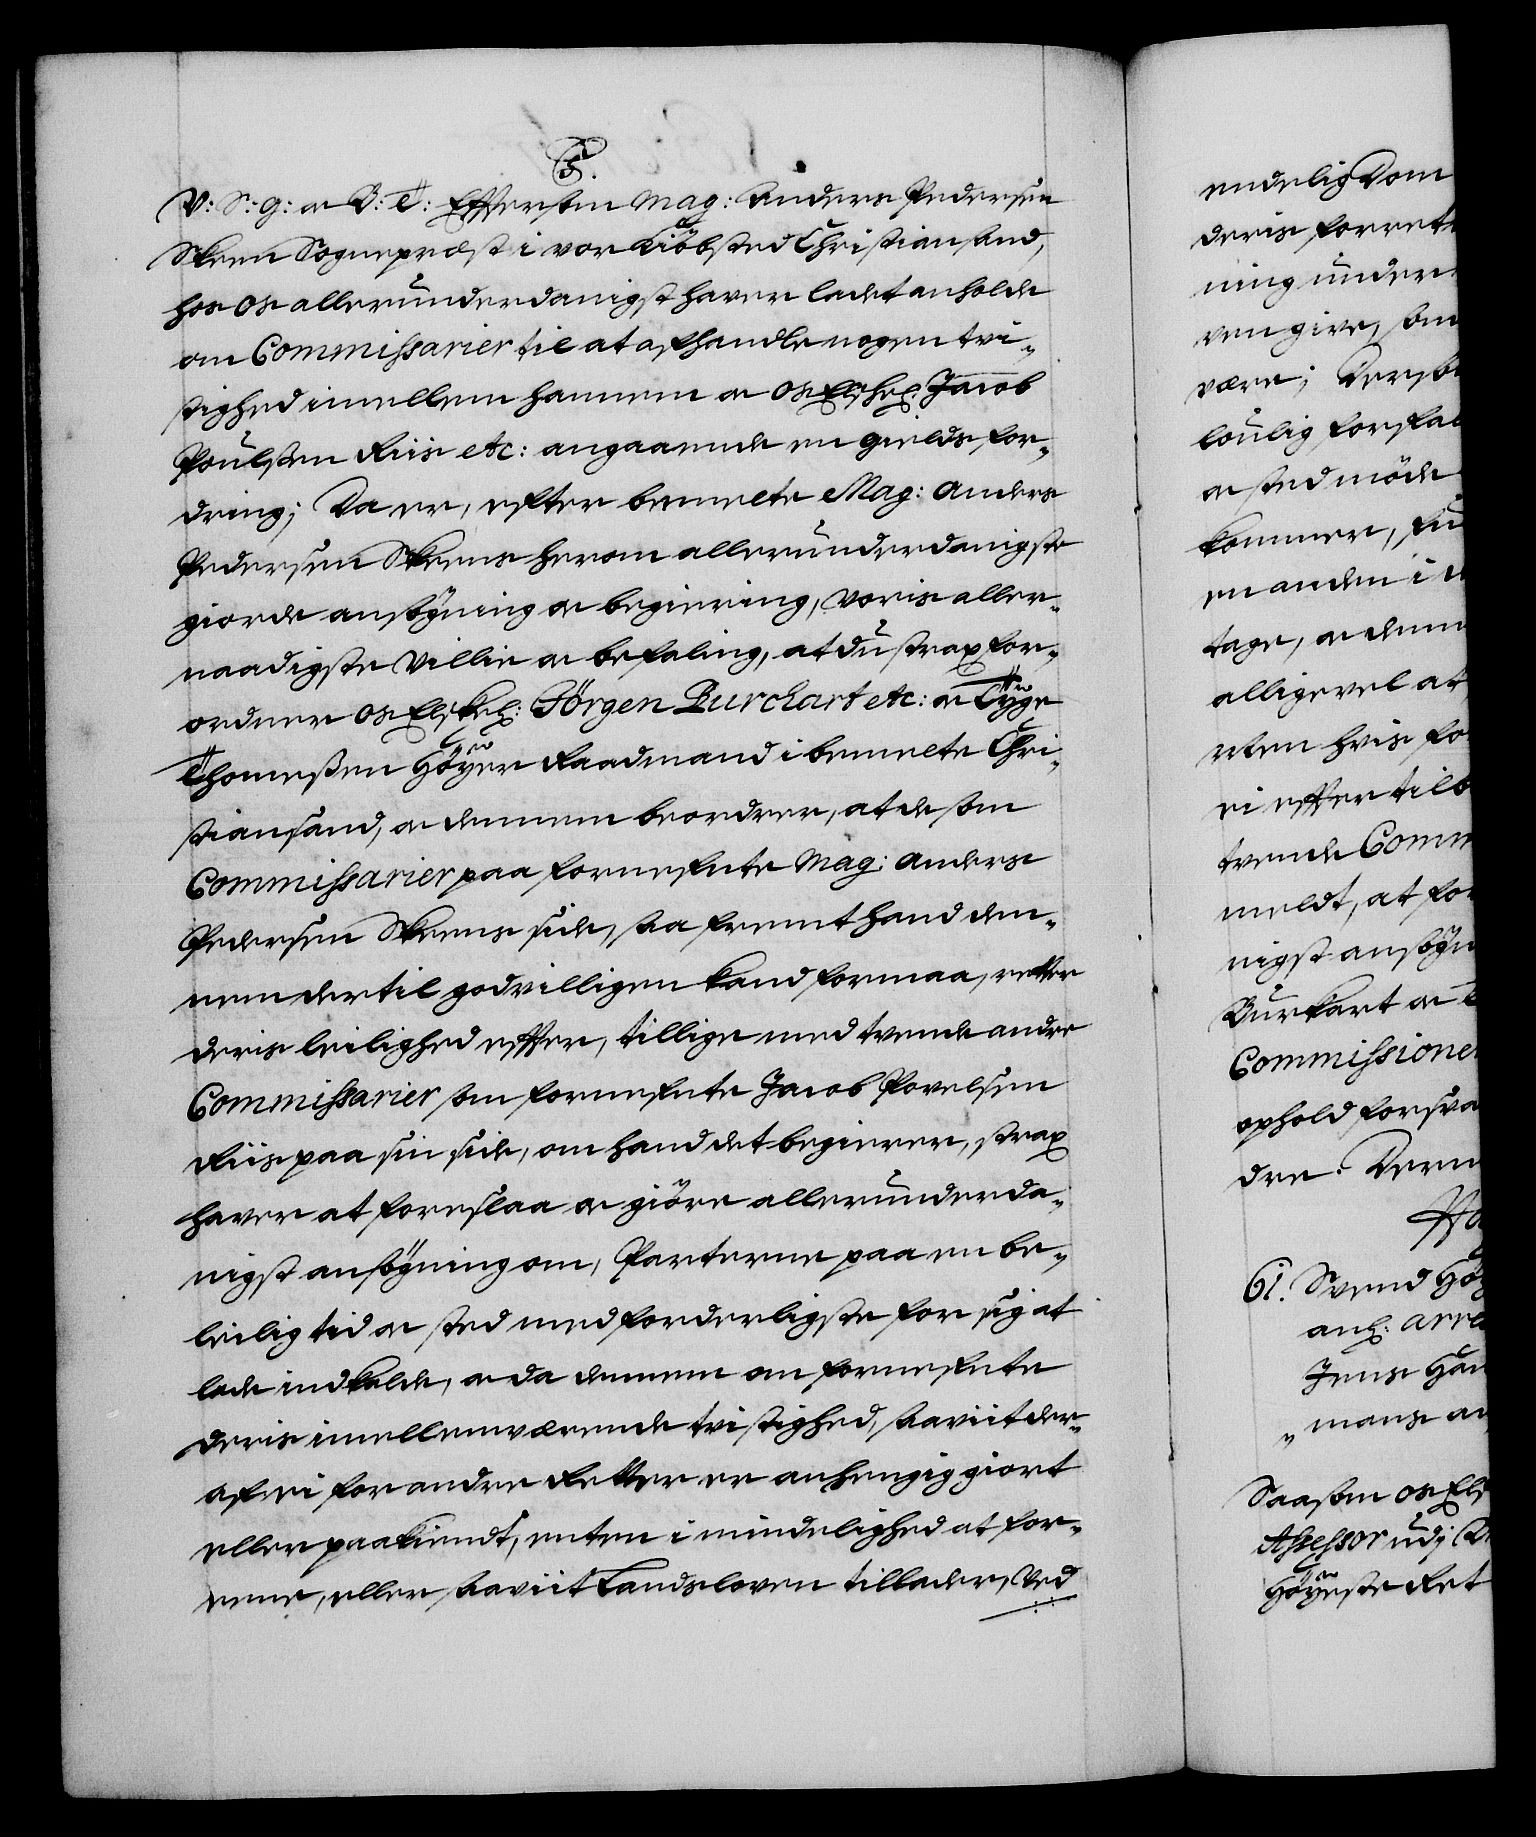 C5.
V: S: G: oc B: T: Eftersom Mag: Anders Pedersen
Skeen Sogneprest i vor Kiöbsted Christiansand,
hos os allerunderdanigst haver ladet anholde
om Commissarier til at afhandle nogen tvi-
stighed imellem hannem oc os Elskel: Jacob
Poulsen Riis etc: angaaende en gields for-
dring; Da er, efter bemelte Mag: Anders
Pedersen Skeens herom allerunderdanigste
giorde ansögning oc begiering, voris aller-
naadigste villie oc befaling, at du strax for-
ordner os Elskel: Jörgen Burchart etc: oc Tÿge
Thomeßen Höÿer Raadmand i bemelte Chri-
stiansand, oc dennem beordrer, at de som
Commissarier paa fornefnte Mag: Anders
Pedersen Skeens side, saa fremt hand den-
nem dertil godvilligen kand formaa, retter
deris leilighed effter, tillige med tvende andre
Commissarier som fornefnte Jacob Povelsen
Riis paa sin side, om hand det begierer, strax
haver at foreslaa oc giöre allerunderda-
nigst ansögning om, Parterne paa en be-
leilig tid oc sted med forderligste for sig at
lade indkalde, oc da dennem om fornefnte
deris imellemværende tvistighed, saaviit der-
af ei for andre Retter er anhengig giort
eller paakiendt, enten i mindelighed at for-
eene, eller saaviit Landsloven tillader, ved
endelig Dom
deris forrett
ning under
ven give, som
være; Derso
loulig forfal
oc sted möde
kommer, fu
en anden i
tage, oc denn
alligevel at
rten hvis fo
ei effter til
tvende Comm
meldt, at for
nigst ansögn
Burkart oc T
Commissione
ophold forsva
dre. Derm
61. Svend Höÿ
anl: arre
Jens Han
mans an
Saasom os Els
Assessor udj
Höÿeste Ret